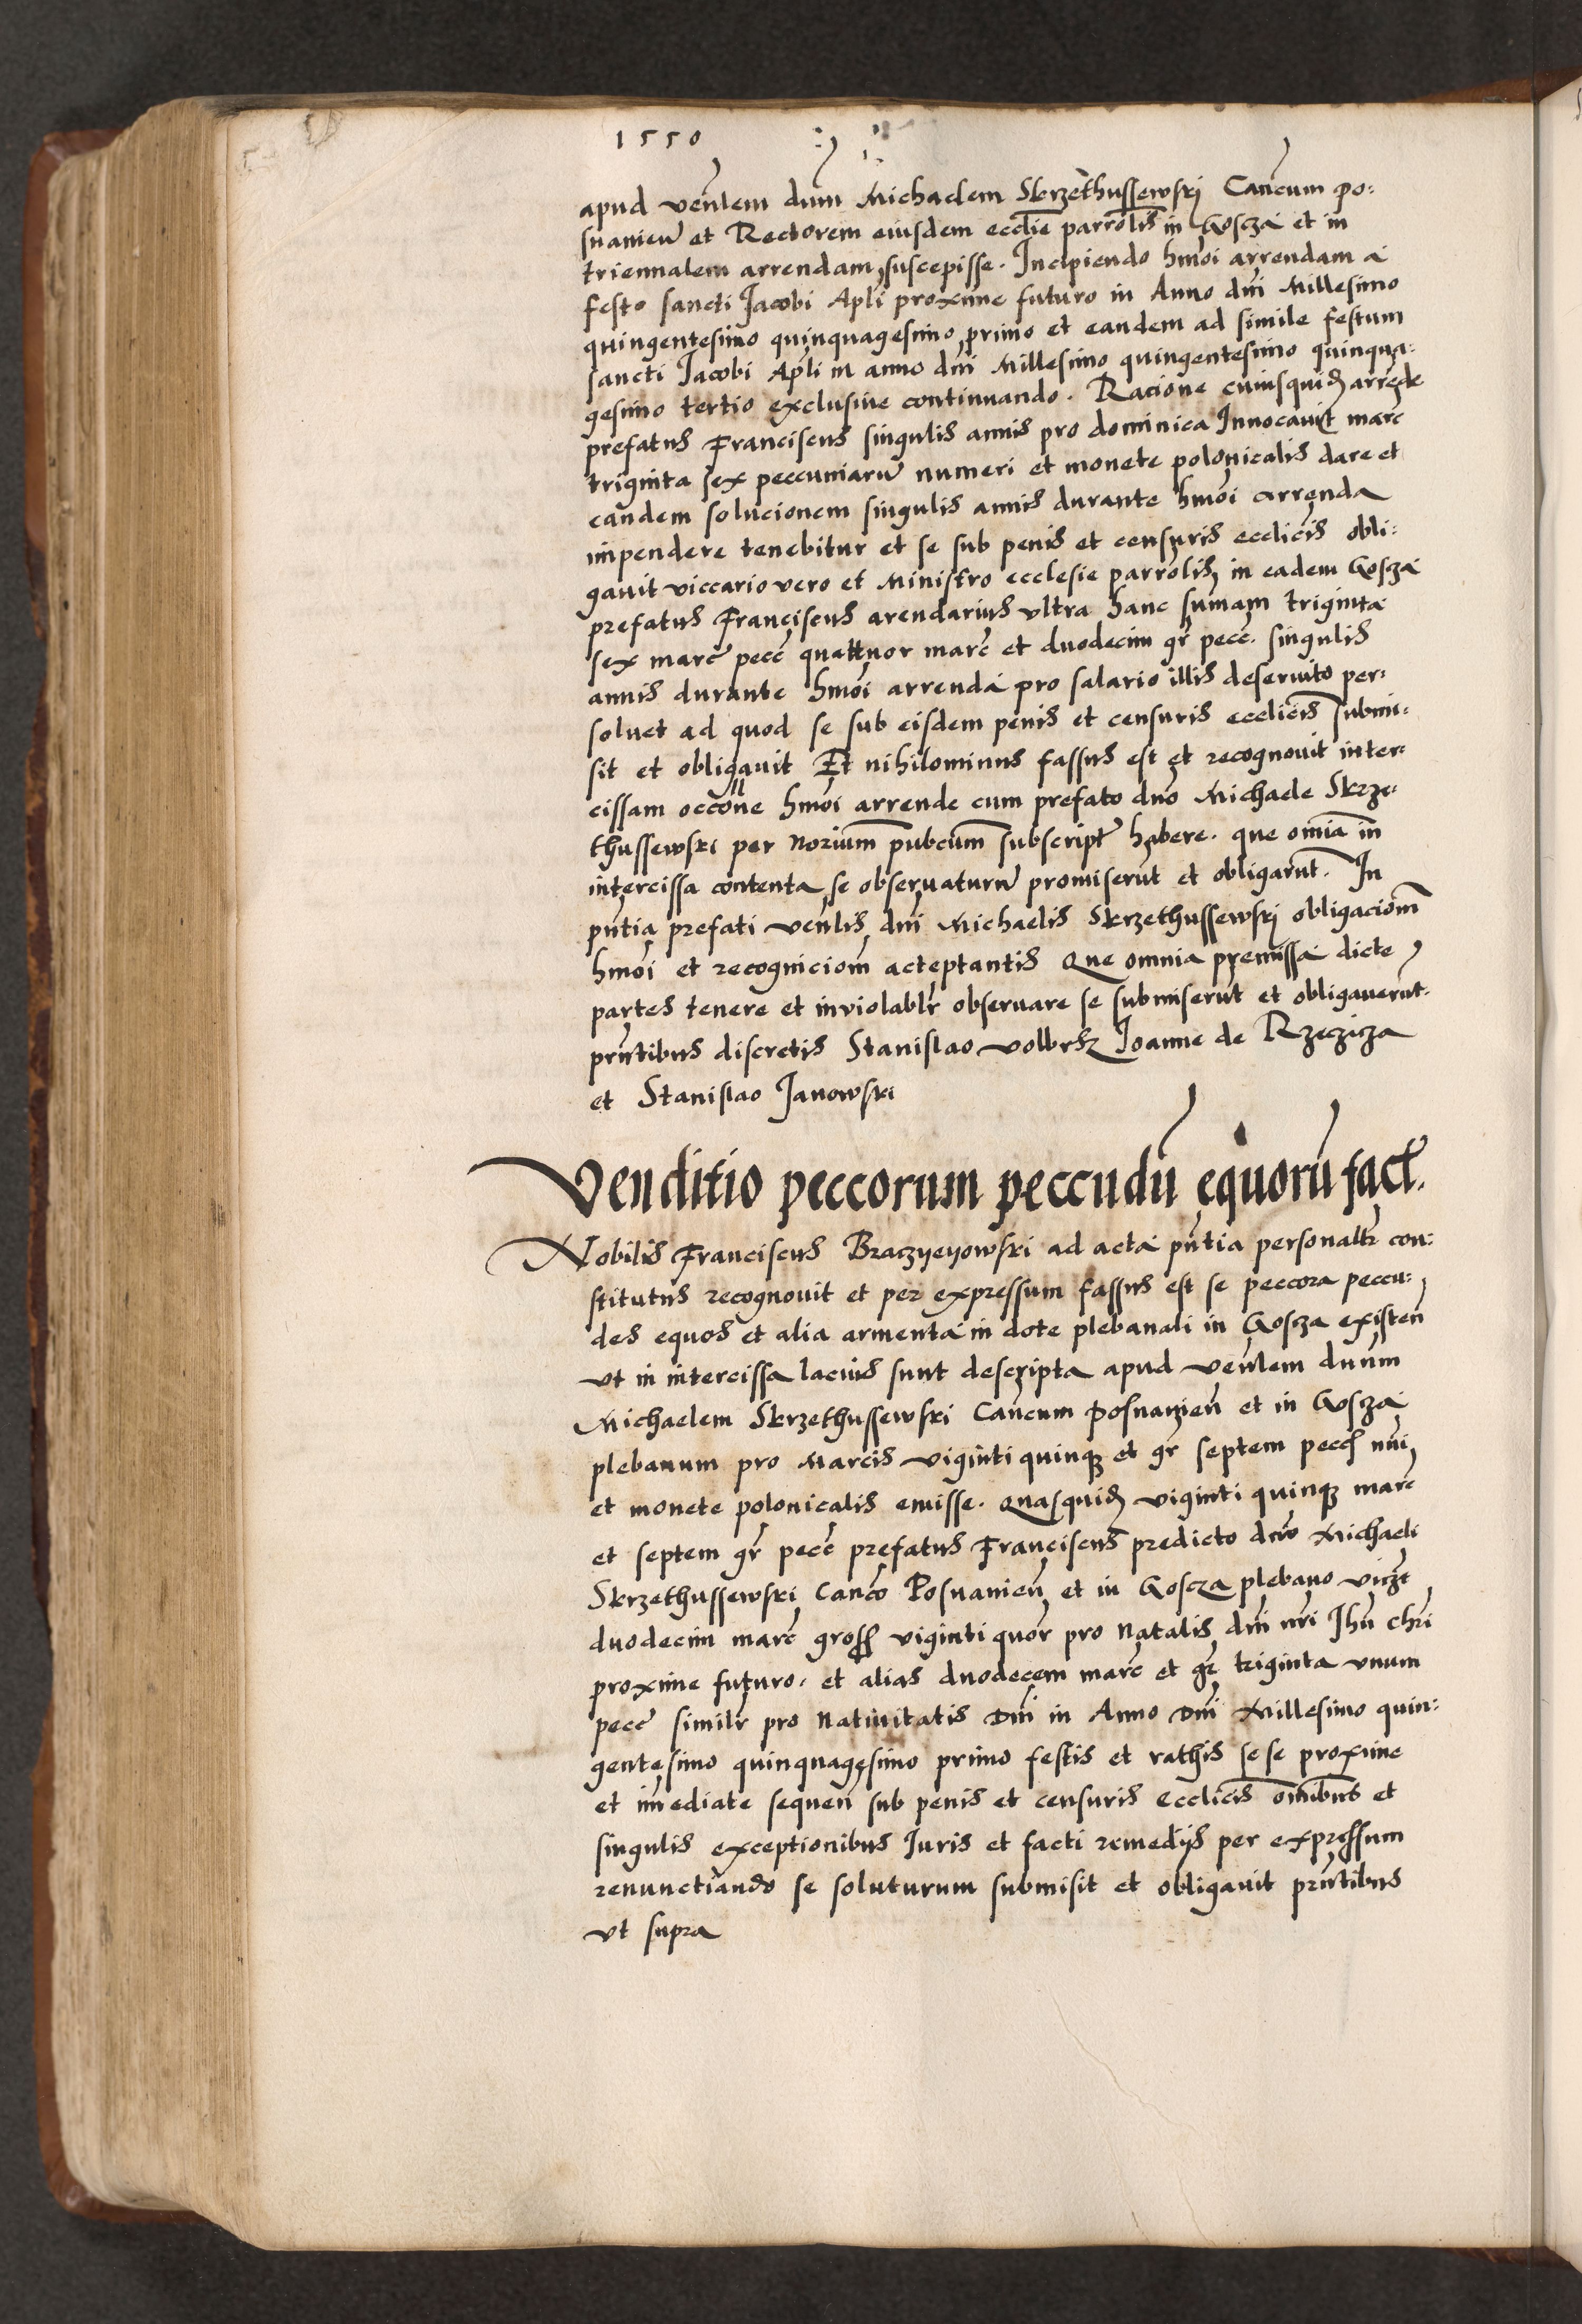 1550
apud venlem dnm Michaelem Skrzethussewski Cancum po:
snanien et Rectorem eiusdem ecclie parrolis in Goscza et in
triennalem arrendam suscepisse. Incipiendo hmoi arrendam a
festo sancti Jacobi Apli proxime futuro in Anno dni Millesimo
quingentesimo quinquagesimo primo et eandem ad simile festum
sancti Jacobi Apli in anno dni Millesimo quingentesimo quinqua:
gesimo tertio exclusive continuando. Racione cuiusquid arrende
prefatus Franciscus singulis annis pro dominica Invocavit marc
triginta sex peccuniaru numeri et monete polonicalis dare et
eandem solucionem singulis annis durante hmoi arrenda
impendere tenebitur et se sub penis et censuris ecclicis obli:
gavit viccario vero et Ministro ecclesie parrolis in eadem Goscza
prefatus Franciscus arendarius ultra hanc sumam triginta
sex marc pecc quattuor marc et duodecim gr pecc. singulis
annis durante hmoi arrenda pro salario illis deservito per:
solvet ad quod se sub eisdem penis et censuris ecclicis submi:
sit et obligavit Et nihilominus fassus est et recognovit inter:
cissam occone hmoi arrende cum prefato dno Michaele Skrze:
thussewski per Norium pubcum subscript habere. que omia in
intercissa contenta se observaturu promiserut et obligarut. In
pntia prefati venlis dni Michaelis Skrzethussewski obligaciom
hmoi et recogniciom acteptantis Que omnia premissa dicte
partes tenere et inviolablr observare se submiserut et obligaverut
prntibus discretis Stanislao Volbrsz Joanne de Rzeczicza
et Stanislao Janowski
Venditio peccorum peccudu equoru fact.
Nobilis Franciscus Braczyeyowski ad acta pntia personaltr con:
stitutus recognovit et per expressum fassus est se peccora peccu:
des equos et alia armenta in dote plebanali in Goscza existen
ut in intercissa lacius sunt descripta apud venlem dnum
Michaelem Skrzethussewski Cancum Posnanien et in Goscza
plebanum pro Marcis viginti quinq et gr septem pecc nui
et monete polonicalis emisse. Quasquid viginti quinq marc
et septem gr pecc prefatus Franciscus predicto dno Michaeli
Skrzethussewski Canco Posnanien et in Goscza plebano vicz
duodecim marc gross viginti quor pro Natalis dni nri Jhu chri
proxime futuro. et alias duodecem marc et gr triginta unum
pecc similr pro Nativitatis Dni in Anno Dni Millesimo quin:
gentesimo quinquagesimo primo festis et rathis se se proxime
et imediate sequen sub penis et censuris Ecclicis omibus et
singulis exceptionibus Juris et facti remedijs per expressum
renunctiando se soluturum submisit et obligavit prntibus
ut supra